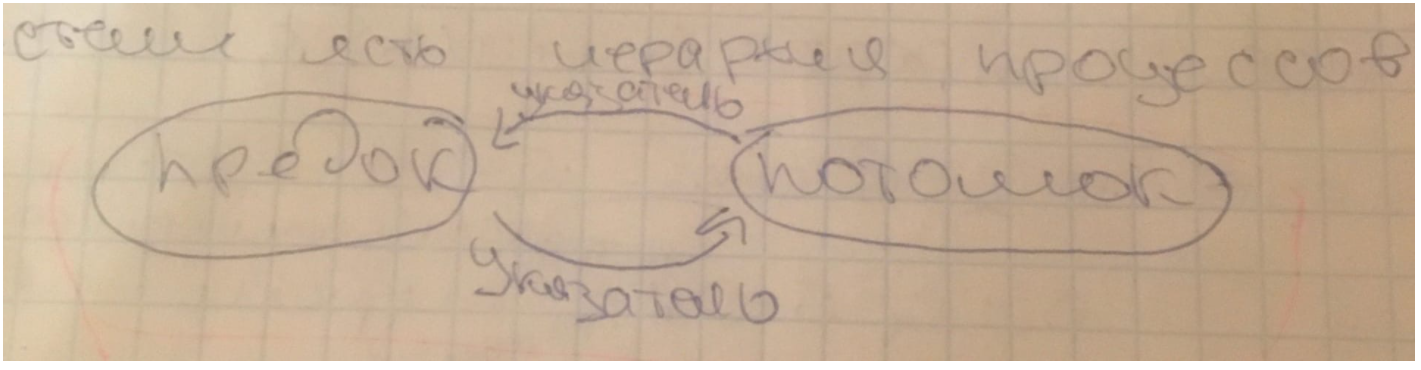 есть иерархия процессов
указатель
предок потомок
указатель